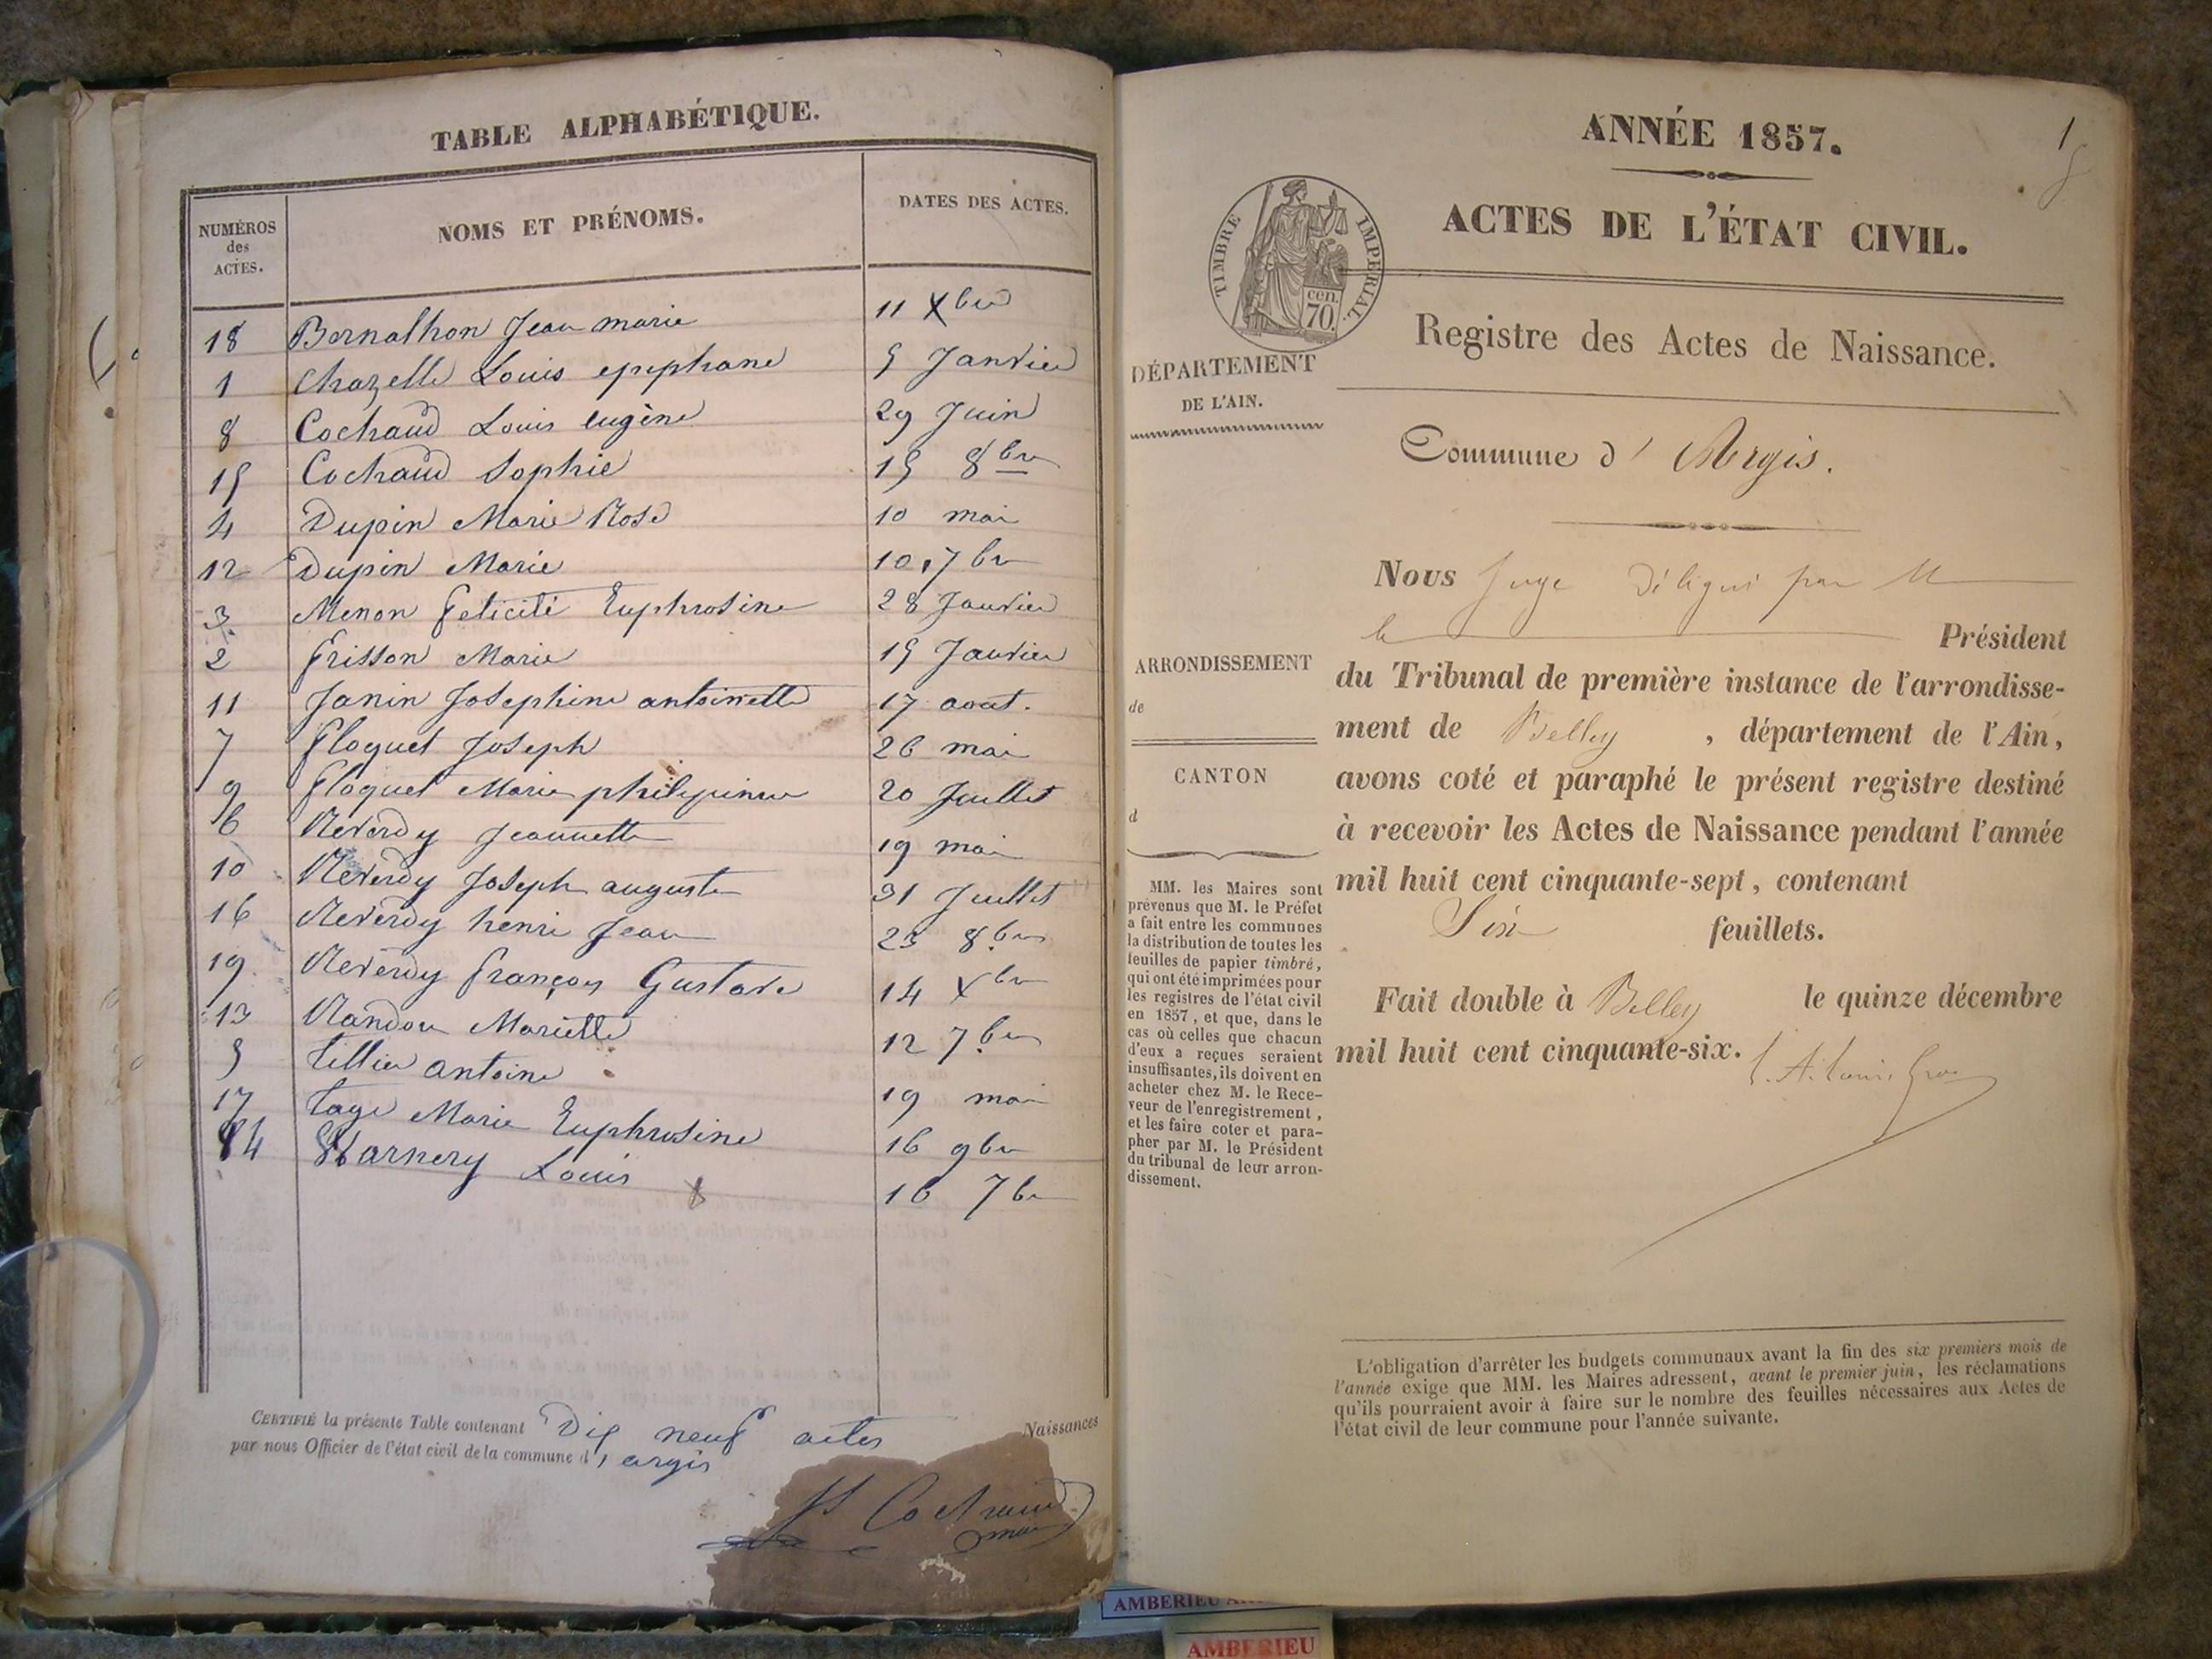 TABLE ALPHABÉTIQUE.
NUMÉROS des ACTES. NOMS ET PRÉNOMS. DATES DES ACTES.
18 Bernalhon Jean marie 11 Xbre
1 Chazelle Louis epiphane 5 Janvier
8 Cochaud Louis eugène 29 Juin
15 Cochaud Sophie 15 8bre
4 Dupin Marie Rose 10 mai
12 Dupin Marie 10 7bre
3 Menon Felicité Euphrosine 28 Janvier
2 Frisson Marie 15 Janvier
11 Janin Josephine antoinette 17 aout.
7 Floquet Joseph 26 mai
9 Floquet Marie philipinne 20 Juillet
6 Reverdy Jeannette 19 mai
10 Reverdy Joseph auguste 31 Juillet
16 Reverdy henri Jean 23 8bre
19 Reverdy François Gustave 14 Xbre
13 Randon Mariette 12 7bre
5 tellier antoine 19 mai
17 tage Marie Euphrosine 16 9bre
14 Warnery Louis 16 7bre
CERTIFIÉ la présente Table contenant Dix neuf actes Naissances
par nous Officier de l'état civil de la commune d' argis
Cochaud
ANNÉE 1857.
1
ACTES DE L'ÉTAT CIVIL.
TIMBRE IMPÉRIAL
cen.
70.
Registre des Actes de Naissance.
DÉPARTEMENT
DE L'AIN.
Commune d' Argis.
Nous Juge Délégué par M
le Président
ARRONDISSEMENT
de
du Tribunal de première instance de l'arrondisse-
ment de Belley, département de l'Ain,
CANTON
d
avons coté et paraphé le présent registre destiné
à recevoir les Actes de Naissance pendant l'année
mil huit cent cinquante-sept, contenant
Six feuillets.
Fait double à Belley le quinze décembre
mil huit cent cinquante-six.
MM. les Maires sont
prévenus que M. le Préfet
a fait entre les communes
la distribution de toutes les
feuilles de papier timbré,
qui ont été imprimées pour
les registres de l'état civil
en 1857, et que, dans le
cas où celles que chacun
d'eux a reçues seraient
insuffisantes, ils doivent en
acheter chez M. le Rece-
veur de l'enregistrement,
et les faire coter et para-
pher par M. le Président
du tribunal de leur arron-
dissement.
L'obligation d'arrêter les budgets communaux avant la fin des six premiers mois de
l'année exige que MM. les Maires adressent, avant le premier juin, les réclamations
qu'ils pourraient avoir à faire sur le nombre des feuilles nécessaires aux Actes de
l'état civil de leur commune pour l'année suivante.
AMBERIEU
AMBERIEU